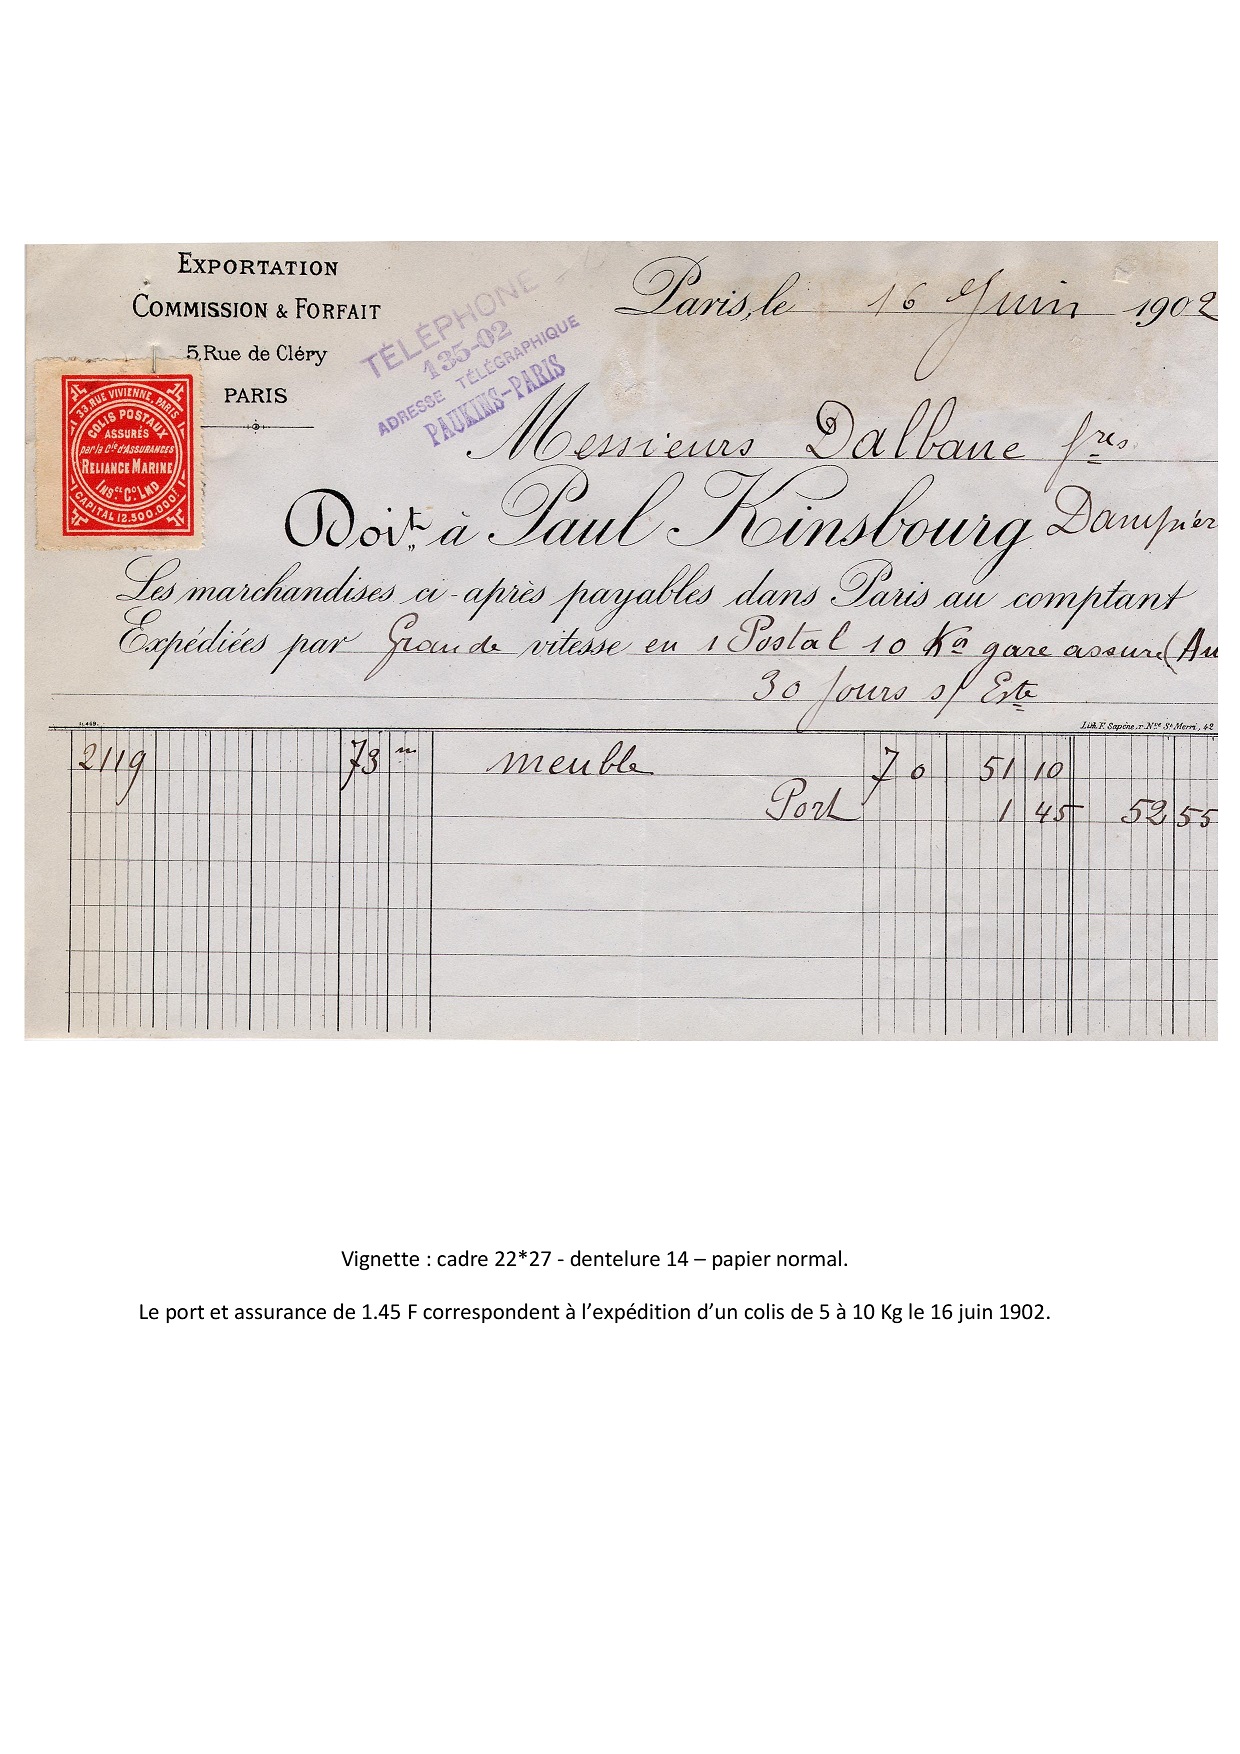 EXPORTATION
COMMISSION & FORFAIT
5, Rue de Cléry
PARIS
TÉLÉPHONE
135-02
ADRESSE TÉLÉGRAPHIQUE
PAUKINS-PARIS
Paris, le 16 Juin 1902
33, RUE VIVIENNE, PARIS
COLIS POSTAUX
ASSURÉS
par la Cie d'ASSURANCES
RELIANCE MARINE
INSce Co LMD
CAPITAL 12.500.000f
Messieurs Dalbane fres
Doit à Paul Kinsbourg Dampier
Les marchandises ci-après payables dans Paris au comptant
Expédiées par Grande vitesse en 1 Postal 10 Ko gare assuré (Au
30 Jours s/ Este
Lith. F. Sapène, r. Nve St Merri, 42
2119 73 m meuble 70 51 10
Port 1 45 52 55
Vignette : cadre 22*27 - dentelure 14 – papier normal.
Le port et assurance de 1.45 F correspondent à l'expédition d'un colis de 5 à 10 Kg le 16 juin 1902.